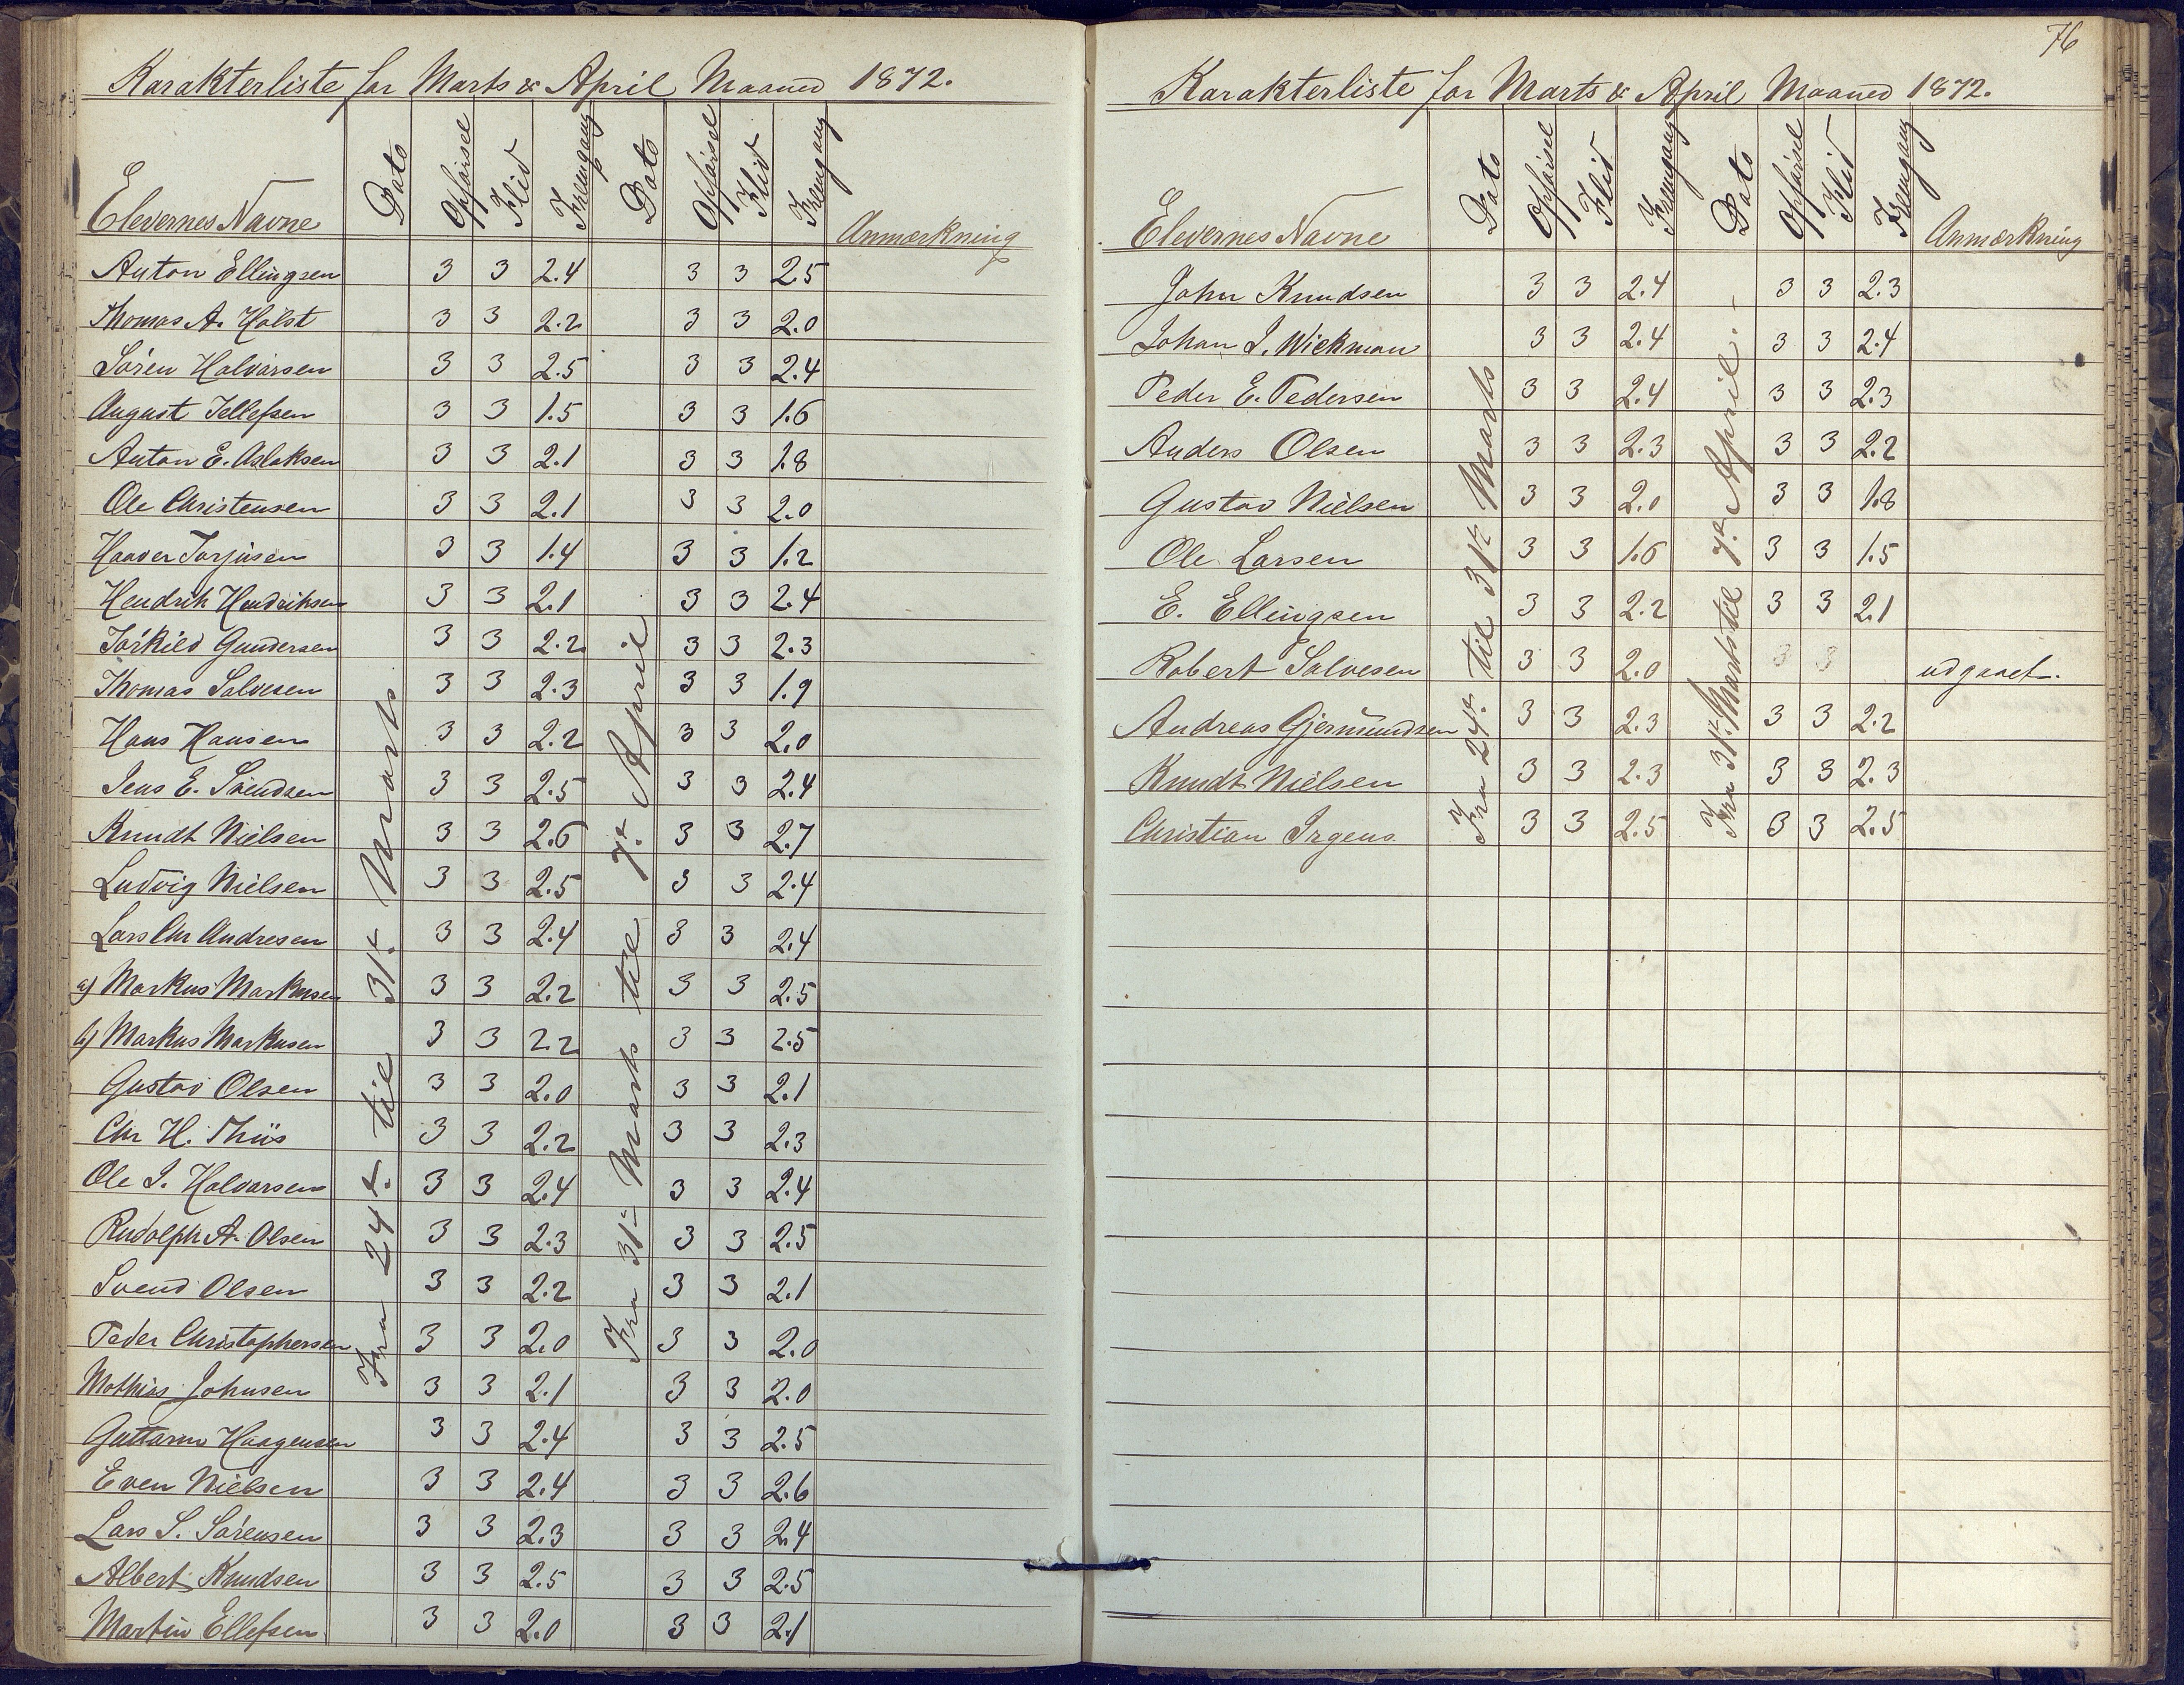 Karakterliste for Marts & April Maaned 1872.
Elevernes Navne Dato Opförsel Flid Fremgang Dato Opförsel Flid Fremgang Anmærkning
Fra 24de til 31te Marts
Fra 31te Marts til 7de April
Anton Ellingsen 3 3 2.4 3 3 2.5
Thomas A. Holst 3 3 2.2 3 3 2.0
Sören Halvorsen 3 3 2.5 3 3 2.4
August Tellefsen 3 3 1.5 3 3 1.6
Anton E. Aslaksen 3 3 2.1 3 3 1.8
Ole Christensen 3 3 2.1 3 3 2.0
Haaver Torjusen 3 3 1.4 3 3 1.2
Hendrik Hendriksen 3 3 2.1 3 3 2.4
Torkild Gundersen 3 3 2.2 3 3 2.3
Thomas Salvesen 3 3 2.3 3 3 1.9
Hans Hansen 3 3 2.2 3 3 2.0
Jens E. Svendsen 3 3 2.5 3 3 2.4
Knudt Nielsen 3 3 2.6 3 3 2.7
Ludvig Nielsen 3 3 2.5 3 3 2.4
Lars Chr Andresen 3 3 2.4 3 3 2.4
a) Markus Markusen 3 3 2.2 3 3 2.5
b) Markus Markusen 3 3 2.2 3 3 2.5
Gustav Olsen 3 3 2.0 3 3 2.1
Chr H. Thiis 3 3 2.2 3 3 2.3
Ole I. Halvorsen 3 3 2.4 3 3 2.4
Rudolph A. Olsen 3 3 2.3 3 3 2.5
Svend Olsen 3 3 2.2 3 3 2.1
Peder Christophersen 3 3 2.0 3 3 2.0
Mathias Johnsen 3 3 2.1 3 3 2.0
Guttorm Haagensen 3 3 2.4 3 3 2.5
Even Nielsen 3 3 2.4 3 3 2.6
Lars S. Sörensen 3 3 2.3 3 3 2.4
Albert Knudsen 3 3 2.5 3 3 2.5
Martin Ellefsen 3 3 2.0 3 3 2.1
76
Karakterliste for Marts & April Maaned 1872.
Elevernes Navne Dato Opförsel Flid Fremgang Dato Opförsel Flid Fremgang Anmærkning
Fra 24de til 31te Marts
Fra 31te Marts til 7de April.
John Knudsen 3 3 2.4 3 3 2.3
Johan I. Wickman 3 3 2.4 3 3 2.4
Peder E. Pedersen 3 3 2.4 3 3 2.3
Anders Olsen 3 3 2.3 3 3 2.2
Gustav Nielsen 3 3 2.0 3 3 1.8
Ole Larsen 3 3 1.6 3 3 1.5
E. Ellingsen 3 3 2.2 3 3 2.1
Robert Salvesen 3 3 2.0 3 3 udgaaet.
Andreas Gjermundsen 3 3 2.3 3 3 2.2
Knudt Nielsen 3 3 2.3 3 3 2.3
Christian Irgens 3 3 2.5 3 3 2.5